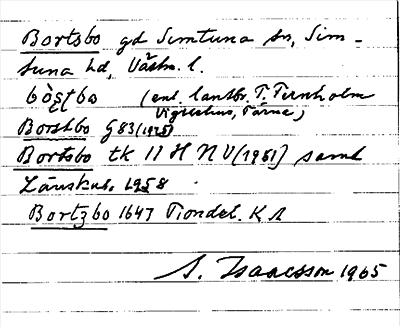 Bortsbo gd Simtuna sn, Sim-
tuna hd, Västm. l.
bòs̩tbo (enl. lantbr. T. Ternholm
Vigelsbo, Tärna)
Borstbo G 83 (1925)
Bortsbo tk 11 H NV (1951) samt
Länskat. 1958
Bortzbo 1647 Tiondel. KA
S. Isaacsson 1965